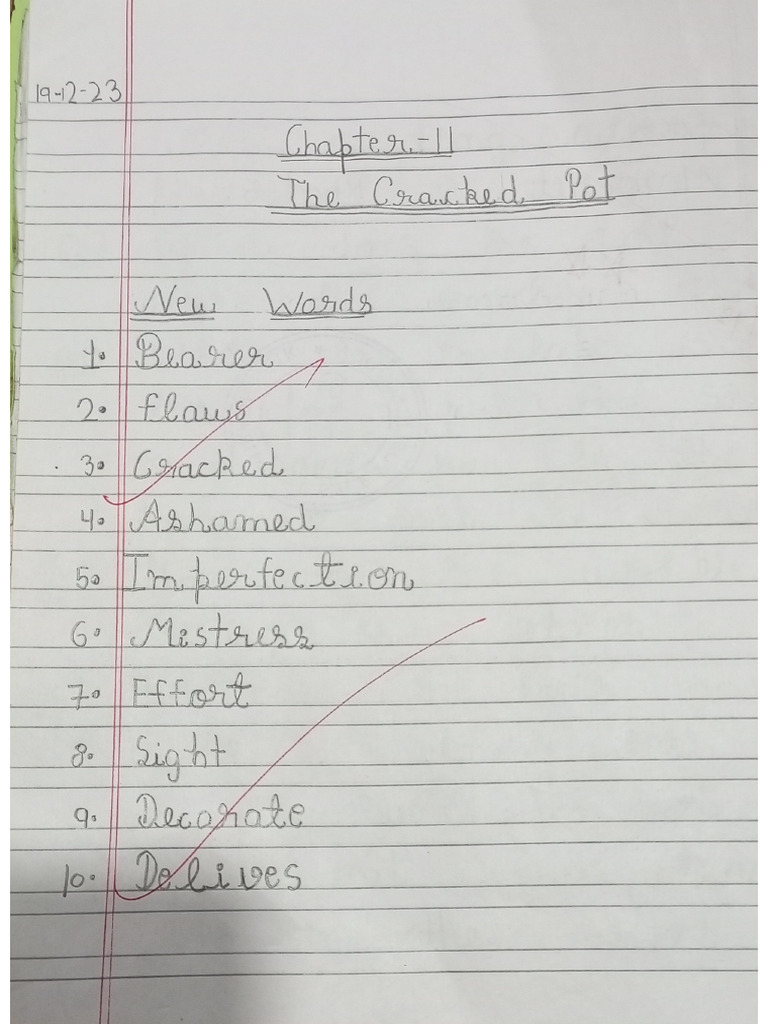 19-12-23
Chapter-11
The Cracked Pot
New Words
1. Bearer
2. flaws
3. Cracked
4. Ashamed
5. Imperfection
6. Mistress
7. Effort
8. Sight
9. Decorate
10. Delives